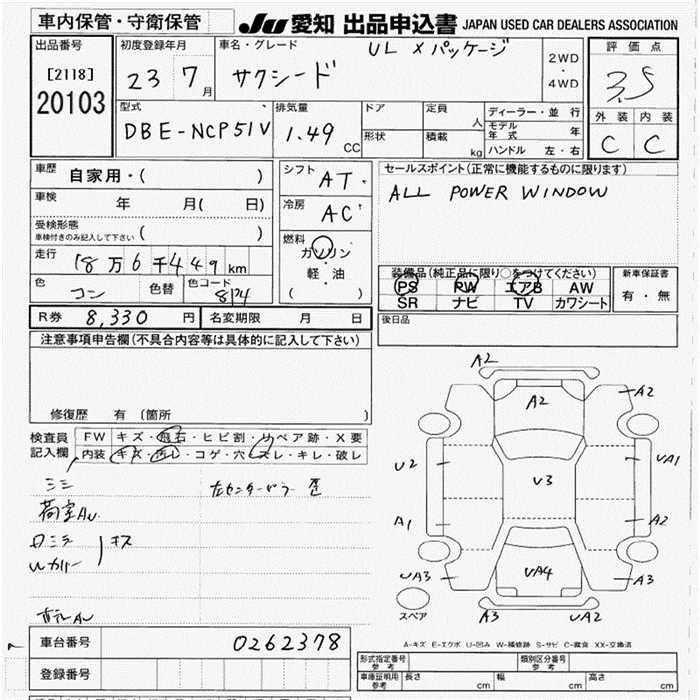 車内保管・守衛保管
JU 愛知 出品申込書 JAPAN USED CAR DEALERS ASSOCIATION
出品番号
[2118]
20103
初度登録年月
23 7 月
車名・グレード
UL Xパッケージ
サクシード
2WD
・
4WD
評価点
3.5
外装 内装
C C
型式
DBE-NCP51V
排気量
1.49 CC
ドア
形状
定員 人
積載 kg
ディーラー・並行
モデル年式 年
ハンドル 左・右
車歴 自家用・( )
車検 年 月( 日)
受検形態
車検付きのみ記入して下さい ( )
走行 18万6千449km
色 コン 色替 色コード 8P4
シフト AT
冷房 AC
燃料
ガソリン
軽・油
( )
セールスポイント(正常に機能するものに限ります)
ALL POWER WINDOW
装備品(純正品に限り○をつけてください)
PS PW エアB AW
SR ナビ TV カワシート
新車保証書
有・無
R券 8,330 円 名変期限 月 日
後日品
注意事項申告欄(不具合内容等は具体的に記入して下さい)
修復歴 有 (箇所 )
検査員
記入欄
FW キズ・飛石・ヒビ割・リペア跡・X要
内装 キズ・汚レ・コゲ・穴・スレ・キレ・破レ
ミミ
荷室AU
キズ
A2
A2
A2
U2
V3
UA1
A1
A2
UA3
UA4
A3
スペア
A3
UA2
A-キズ E-エクボ U-凹み W-補修跡 S-サビ C-腐食 XX-交換済
車台番号 0262378
登録番号
形式指定番号
参考
類別区分番号
参考
車庫証明用
参考
長さ cm 幅 cm 高さ cm